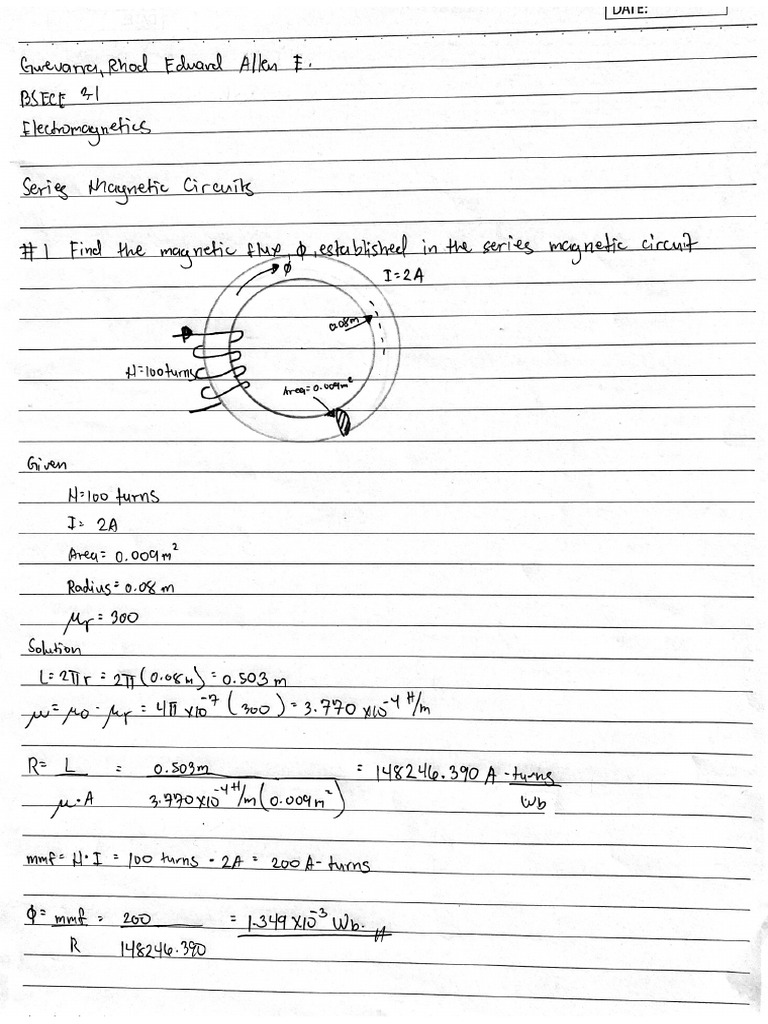 DATE:
Guevarra, Rhod Edward Allen F.
BSECE 31
Electromagnetics
Series Magnetic Circuits
#1 Find the magnetic flux, ϕ, established in the series magnetic circuit
ϕ
I=2A
0.08m
N=100turns
Area=0.009m²
Given
N=100 turns
I= 2A
Area= 0.009m²
Radius=0.08 m
μr = 300
Solution
L=2πr = 2π(0.08m) = 0.503 m
μ= μ0 · μr = 4π x10⁻⁷ (300) = 3.770 x10⁻⁴ H/m
R= L / μ·A = 0.503m / 3.770x10⁻⁴ H/m(0.009m²) = 148246.390 A-turns / Wb
mmf= N·I = 100 turns · 2A = 200 A-turns
ϕ= mmf / R = 200 / 148246.390 = 1.349 x10⁻³ Wb.